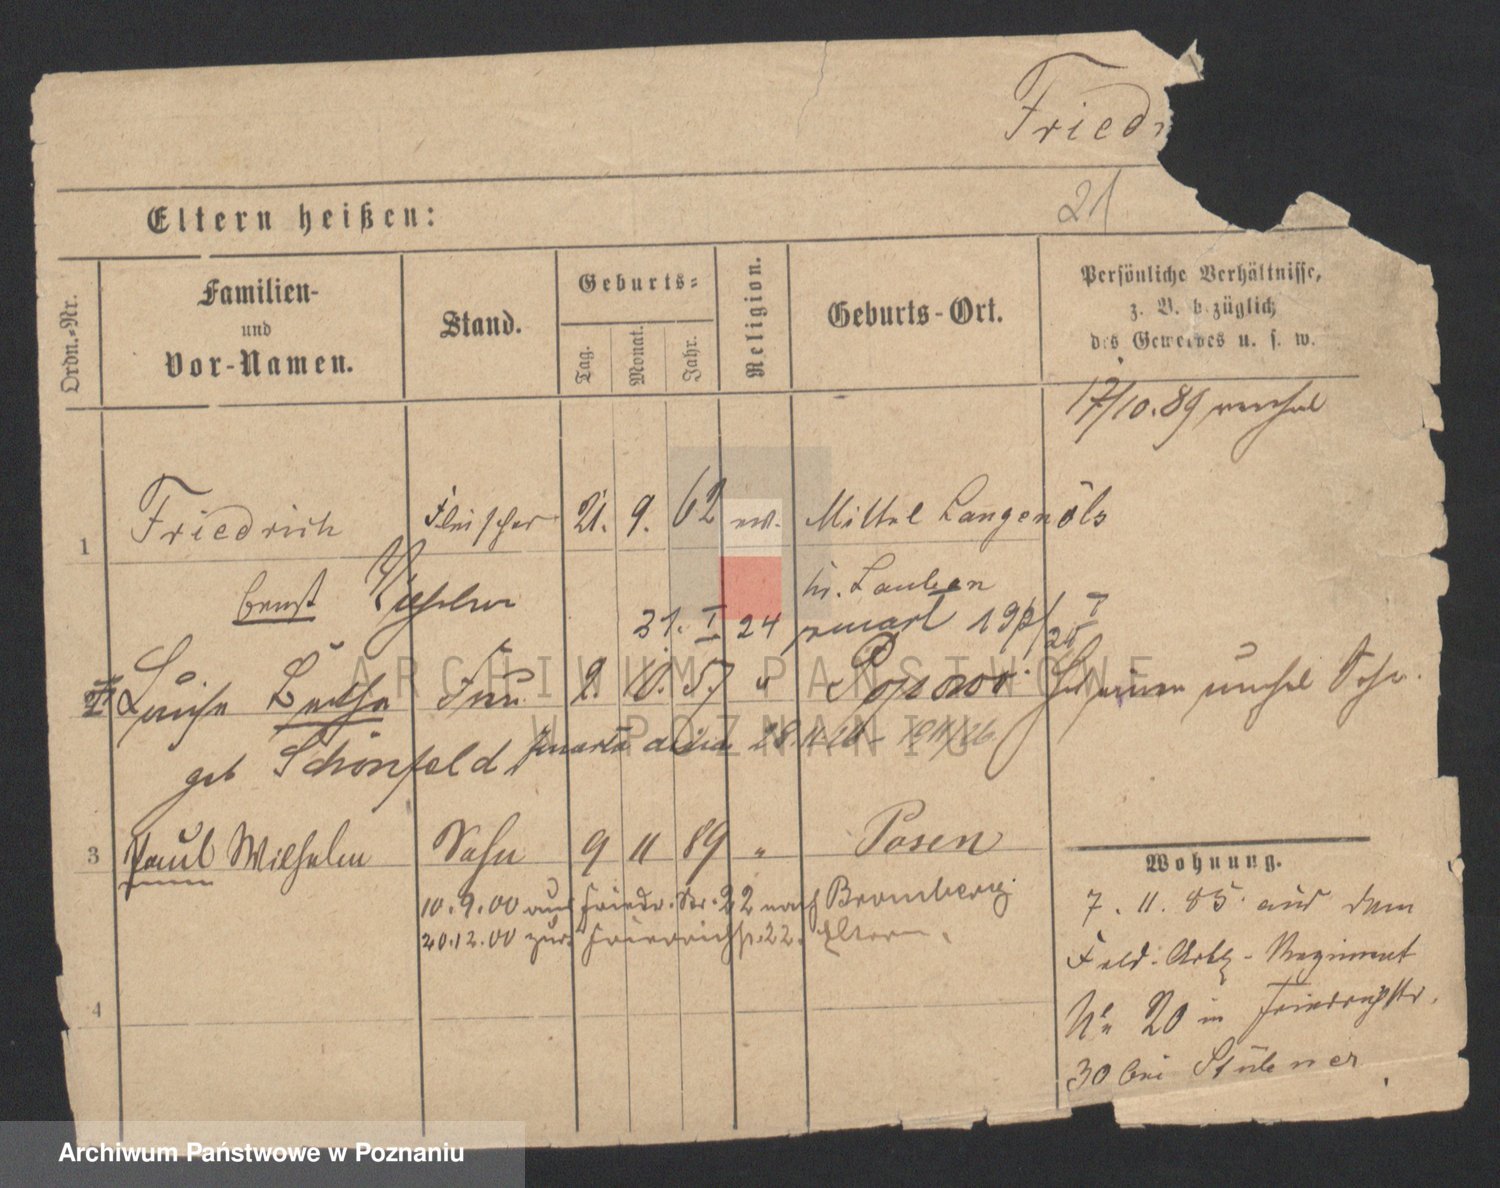 Fried
21
Eltern heißen:
Ordn.-Nr.
Familien-
und
Vor-Namen.
Stand.
Geburts-
Tag.
Monat.
Jahr.
Religion.
Geburts-Ort.
Persönliche Verhältnisse,
z. B. bezüglich
des Gewerbes u. s. w.
17/10.89
1 Friedrich Fleischer 21. 9. 62 ev. Mittel Langenöls
Ernst Wilhelm Kr. Lauban
31. I 24 zmarł
2 Luise Bertha Frau 2. 10. 57 "
geb Schönfeld zmarła dnia
3 Paul Wilhelm Sohn 9 11 89 " Posen
10.9.00 aus Friedr. Str. 22 nach Bromberg.
20.12.00 zur. Friedrichstr. 22. Eltern.
4
Wohnung.
7. 11. 85. aus dem
Feld-Artl.-Regiment
No 20 in Friedrichstr.
30 bei Stübner
ARCHIWUM PAŃSTWOWE
W POZNANIU
Archiwum Państwowe w Poznaniu